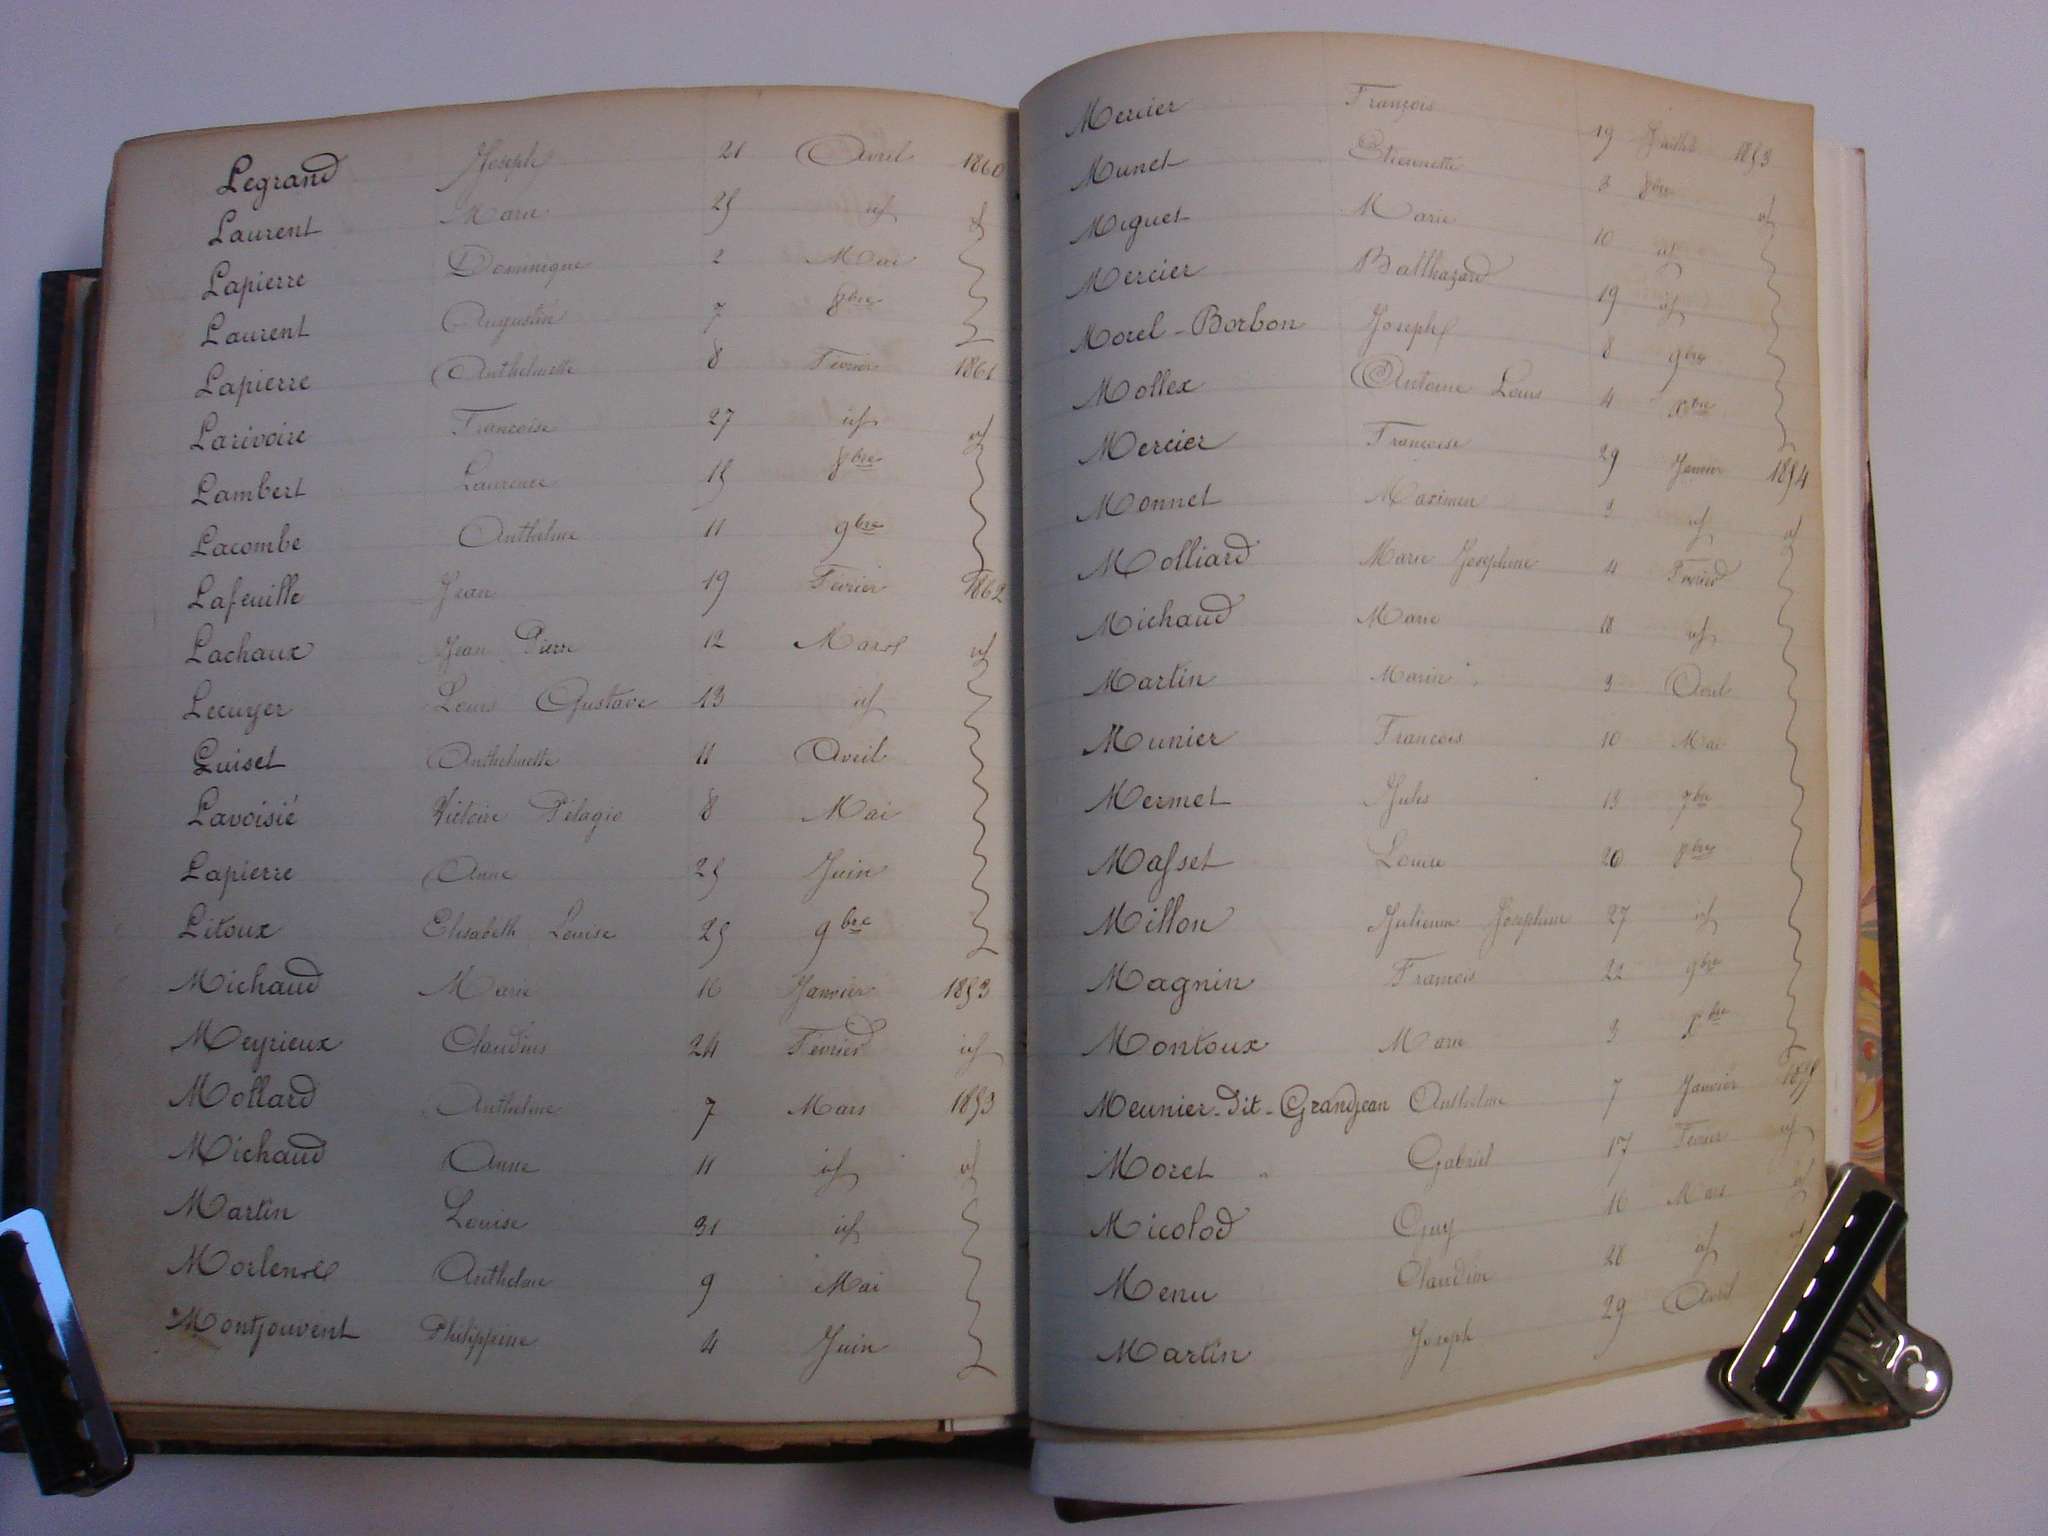 Legrand Joseph 21 Avril 1860
Laurent Marie 25 id id
Lapierre Dominique 2 Mai
Laurent Augustin 7 8bre
Lapierre Anthelmette 8 Février 1861
Larivoire Francoise 27 id id
Lambert Laurence 15 8bre
Lacombe Anthelme 11 9bre
Lafeuille Jean 19 Février 1862
Lachaux Jean Pierre 12 Mars id
Lecuyer Louis Gustave 13 id
Luiset Anthelmette 11 Avril
Lavoisié Victoire Pélagie 8 Mai
Lapierre Anne 25 Juin
Litoux Elisabeth Louise 25 9bre
Michaud Marie 16 Janvier 1853
Meyrieux Claudius 24 Février id
Mollard Anthelme 7 Mars 1853
Michaud Anne 11 id id
Martin Louise 31 id
Morlens Anthelme 9 Mai
Montjouvent Philippine 4 Juin
Mercier François 19 Juillet 1853
Munet Etiennette 3 8bre id
Miguet Marie 10 id
Mercier Balthazard 19 id
Morel-Borbon Joseph 8 9bre
Mollex Antoine Louis 4 Xbre
Mercier Francoise 29 Janvier 1854
Monnet Maximin 3 id id
Molliard Marie Josephine 4 Février
Michaud Marie 18 id
Martin Marie 3 Avril
Munier Francois 10 Mai
Mermet Jules 13 7bre
Masset Louise 20 8bre
Millon Julienne Josephine 27 id
Magnin Francois 22 9bre
Montoux Marie 3 Xbre
Meunier-dit-Grandjean Anthelme 7 Janvier 1855
Moret Gabriel 17 Février id
Micolod Guy 16 Mars id
Menu Claudine 28 id id
Martin Joseph 29 Avril